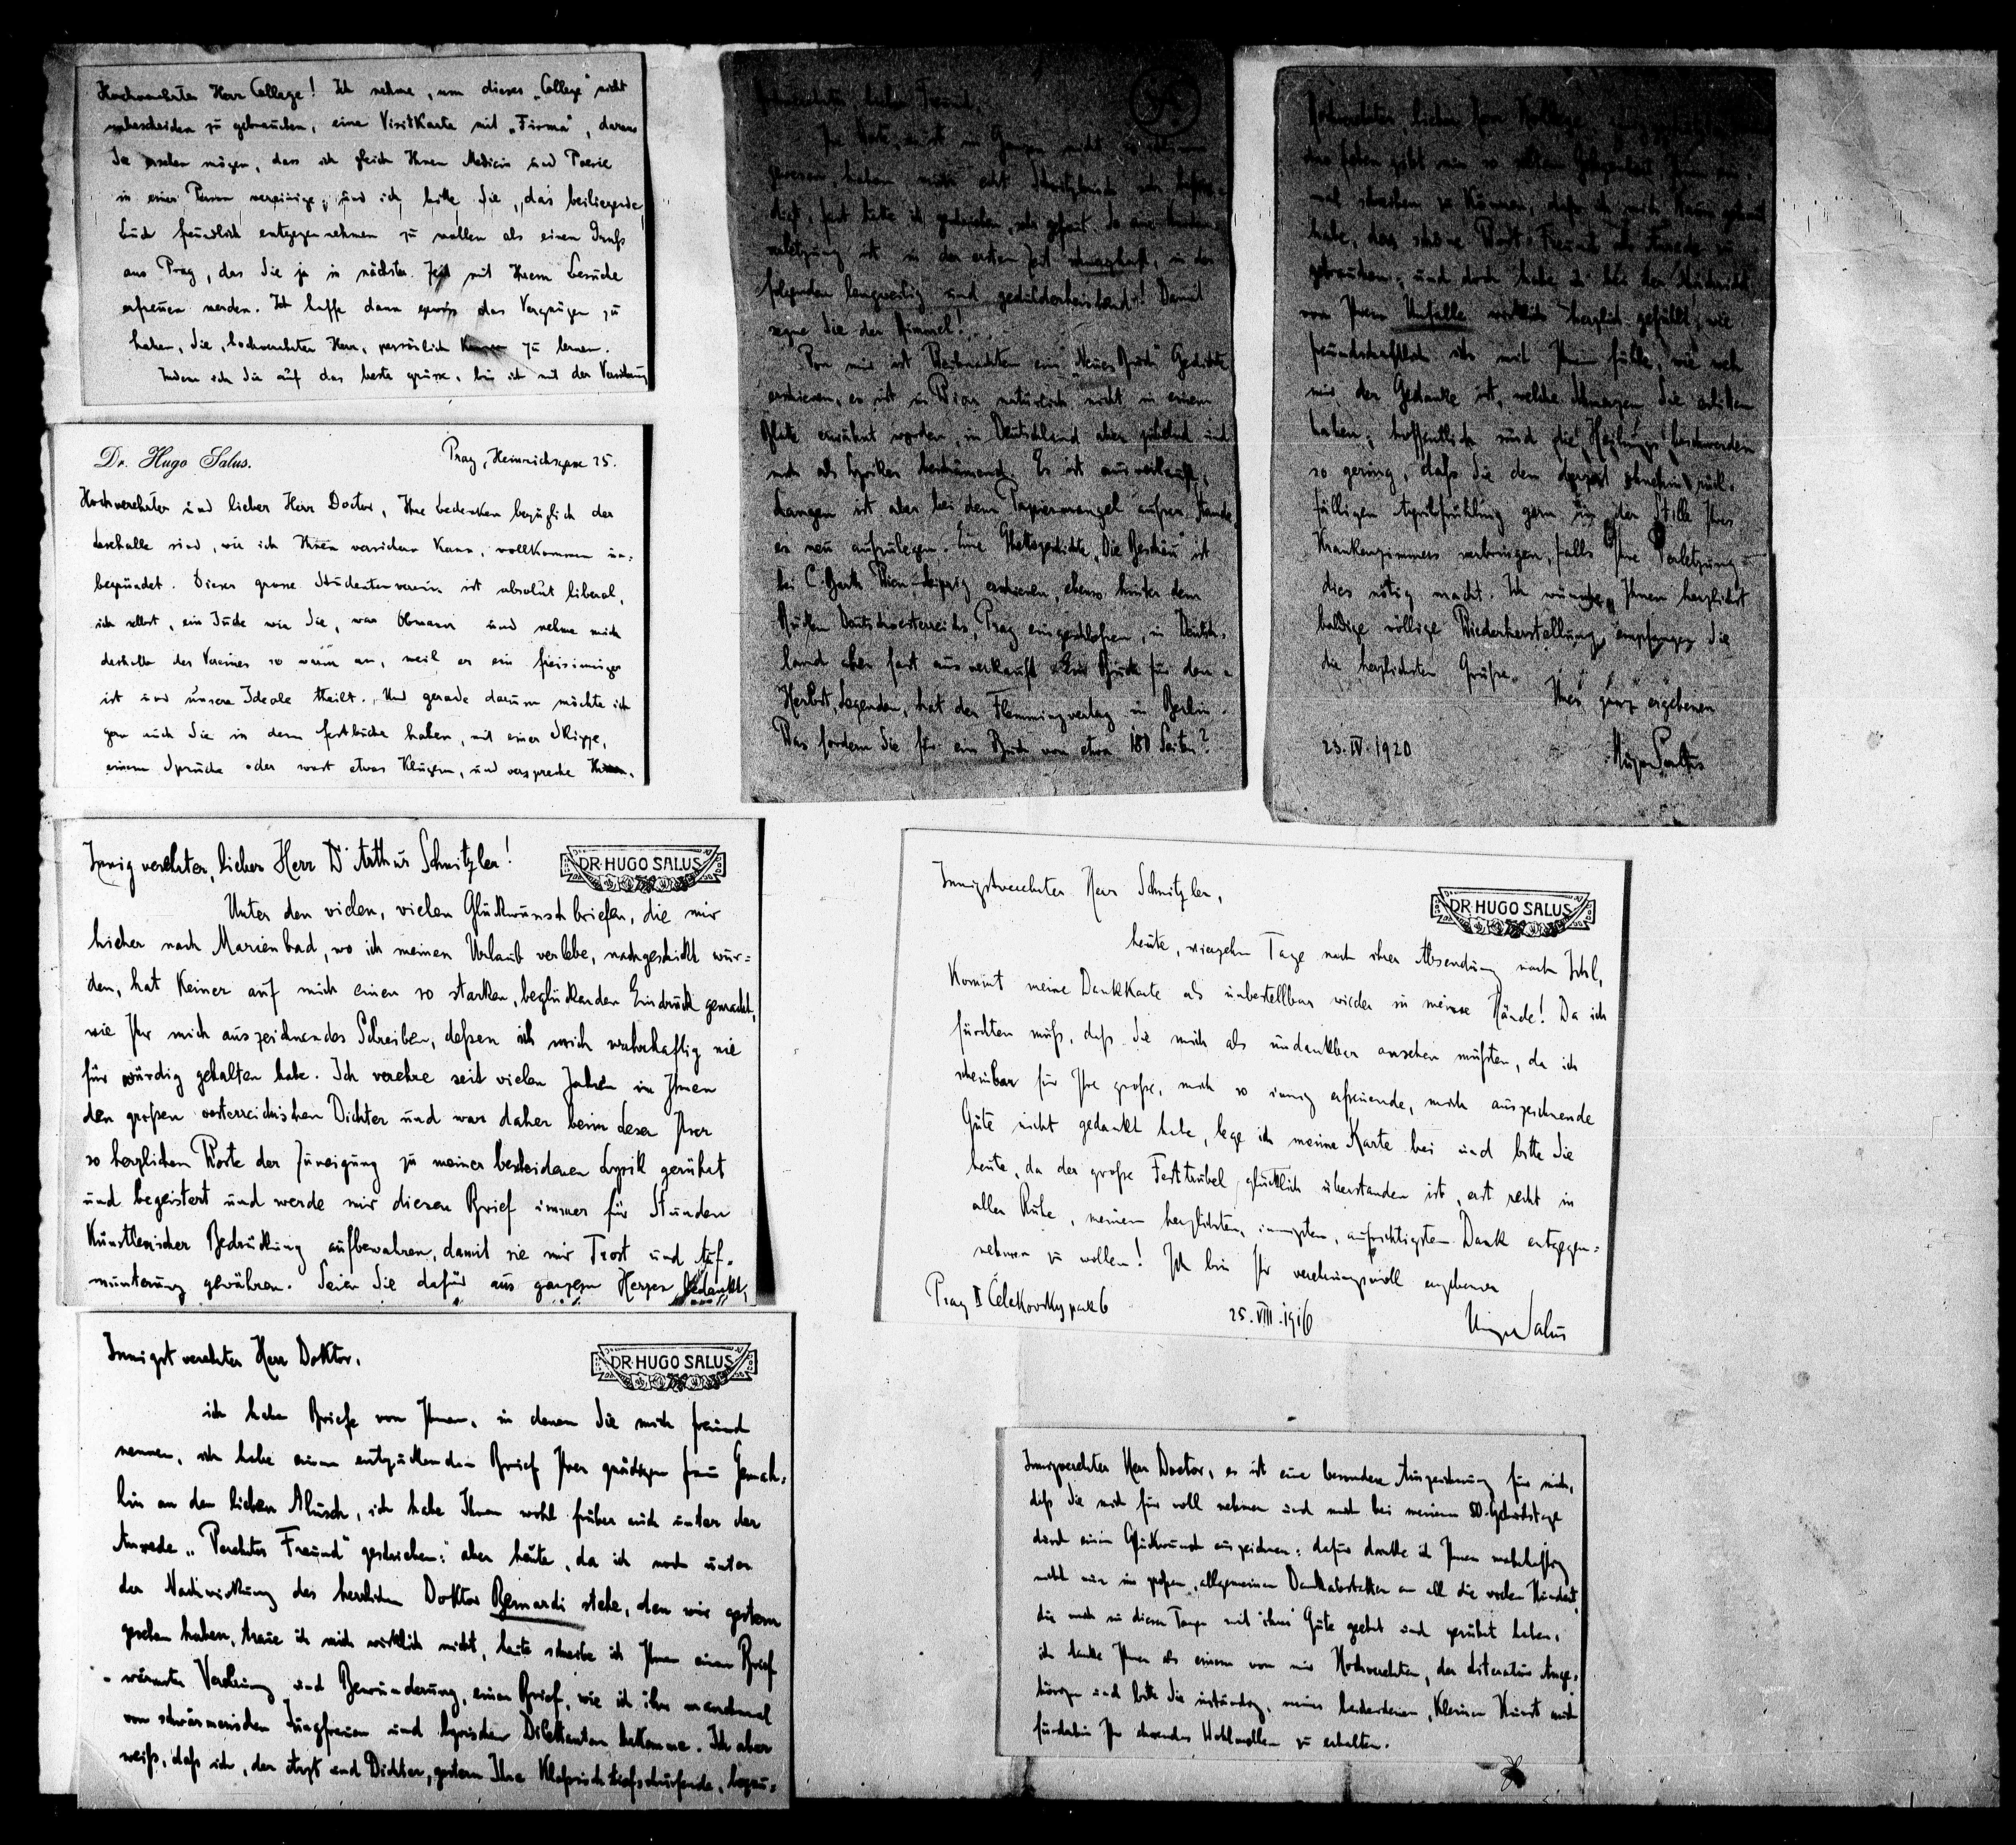 Hochverehrter Herr College! Ich nehme, um dieses „College" nicht
unbescheiden zu gebrauchen, eine Visitkarte mit „Firma", daraus
Sie ersehen mögen, dass ich gleich Ihnen Medicin und Poesie
in einer Person vereinige, und ich bitte Sie, das beiliegende
Buch freundlich entgegennehmen zu wollen als einen Gruß
aus Prag, das Sie ja in nächster Zeit mit Ihrem Besuche
erfreuen werden. Ich hoffe dann gewiss das Vergnügen zu
haben, Sie, hochverehrter Herr, persönlich kennen zu lernen.
Indem ich Sie auf das beste grüsse, bin ich mit der Versicherung
Dr. Hugo Salus.
Prag, Heinrichsgasse 25.
Hochverehrter und lieber Herr Doctor, Ihre Bedenken bezüglich der
Lesehalle sind, wie ich Ihnen versichern kann, vollkommen un-
begründet. Dieser grosse Studentenverein ist absolut liberal,
ich selbst, ein Jude wie Sie, war Obmann und nehme mich
deshalb des Vereines so warm an, weil er ein freisinniger
ist und unsere Ideale theilt. Und gerade darum möchte ich
gern auch Sie in dem Festbuche haben, mit einer Skizze,
einem Spruche oder sonst etwas Klugem, und verspreche Ihnen,
Innig verehrter, lieber Herr Dr Arthur Schnitzler!
DR. HUGO SALUS
Unter den vielen, vielen Glückwunschbriefen, die mir
hieher nach Marienbad, wo ich meinen Urlaub verlebe, nachgeschickt wur=
den, hat keiner auf mich einen so starken, beglückenden Eindruck gemacht,
wie Ihr mich auszeichnendes Schreiben, dessen ich mich wahrhaftig nie
für würdig gehalten habe. Ich verehre seit vielen Jahren in Ihnen
den großen oesterreichischen Dichter und war daher beim Lesen Ihrer
so herzlichen Worte der Zuneigung zu meiner bescheidenen Lyrik gerührt
und begeistert und werde mir diesen Brief immer für Stunden
künstlerischer Bedrückung aufbewahren, damit sie mir Trost und Auf-
munterung gewähren. Seien Sie dafür aus ganzem Herzen bedankt,
Innigst verehrter Herr Doktor,
DR. HUGO SALUS
ich habe Briefe von Ihnen, in denen Sie mich Freund
nennen, ich habe einen entzückenden Brief Ihrer gnädigen Frau Gemah=
lin an den lieben Musch, ich habe Ihnen wohl früher auch unter der
Anrede „Verehrter Freund" geschrieben: aber heute, da ich noch unter
der Nachwirkung des herrlichen Doktor Bernardi stehe, den wir gestern
gesehen haben, traue ich mich wirklich nicht, heute schreibe ich Ihnen einen Brief
wärmster Verehrung und Bewunderung, einen Brief, wie ich ihn manchmal
von schwärmerischen Jungfrauen und lyrischen Dilettanten bekomme. Ich aber
weiß, daß ich, der Arzt und Dichter, gestern Ihre klassisch tiefschürfende, bezau=
gewesen, haben mich
fast hätte ich
verletzung ist in der ersten Zeit schmerzhaft, in der
folgenden langweilig und geduldheischend! Damit
segne Sie der Himmel!
Von mir ist Weihnachten ein „Neues Buch" Gedichte
erschienen, es ist in Wien natürlich nicht in einem
Blatt erwähnt worden, in Deutschland aber
mich als Lyriker Es ist ausverkauft,
Langen ist aber bei dem Papiermangel außer Stande,
es neu aufzulegen. Eine Ghettogeschichte „Die Beschau" ist
bei C. Barth Wien-Leipzig erschienen, ebenso hinter dem
Rücken Deutschoesterreichs, Prag eingeschlossen, in Deutsch-
land aber fast ausverkauft. Ein Buch für den
Herbst, Legenden, hat der Flemmingverlag in Berlin.
Was fordern Sie für ein Buch von etwa 180 Seiten?
Hochverehrter, lieber Herr Kollege
das Leben gibt mir so selten Gelegenheit, Ihnen ein-
mal schreiben zu können, daß ich mich kaum getraut
habe, das schöne Wort: Freund als Anrede zu
gebrauchen, und doch habe ich bei der Nachricht
von Ihrem Unfalle wirklich herzlich gefühlt, wie
freundschaftlich ich mit Ihnen fühle, wie weh
mir der Gedanke ist, welche Schmerzen Sie erlitten
haben; hoffentlich sind die Heilungsbeschwerden
so gering, daß Sie den derzeit ohnehin rück-
fälligen Aprilfrühling gern in der Stille Ihres
Krankenzimmers verbringen, falls Ihre Verletzung
dies nötig macht. Ich wünsche Ihnen herzlichst
baldige völlige Wiederherstellung, empfangen Sie
die herzlichsten Grüße
Ihres ganz ergebenen
23. IV. 1920
Hugo Salus
Innigstverehrter Herr Schnitzler,
DR. HUGO SALUS
heute, vierzehn Tage nach ihrer Absendung nach Ischl,
kommt meine Dankkarte als unbestellbar wieder in meine Hände! Da ich
fürchten muß, daß Sie mich als undankbar ansehen müßten, da ich
scheinbar für Ihre große, mich so innig erfreuende, mich auszeichnende
Güte nicht gedankt habe, lege ich meine Karte bei und bitte Sie
heute, da der große Festtrubel glücklich überstanden ist, erst recht in
aller Ruhe, meinen herzlichsten, innigsten, aufrichtigsten Dank entgegen=
nehmen zu wollen! Ich bin Ihr verehrungsvoll ergebener
Prag II Čelakovskypark 6
25. VIII. 1916
Hugo Salus
Innigverehrter Herr Doctor, es ist eine besondere Auszeichnung für mich,
daß Sie mich für voll nehmen und mich bei meinem 50. Geburtstage
durch einen Glückwunsch auszeichnen: dafür danke ich Ihnen wahrhaftig
nicht nur im großen, allgemeinen Dankabstatten an all die vielen Hundert,
die mich in diesen Tagen mit ihrer Güte geehrt und gerührt haben,
ich danke Ihnen als einem von mir Hochverehrten, der Literatur Ange-
hörigen und bitte Sie inständig, meiner bescheidenen, kleinen Kunst auch
fürderhin Ihr ehrendes Wohlwollen zu erhalten.